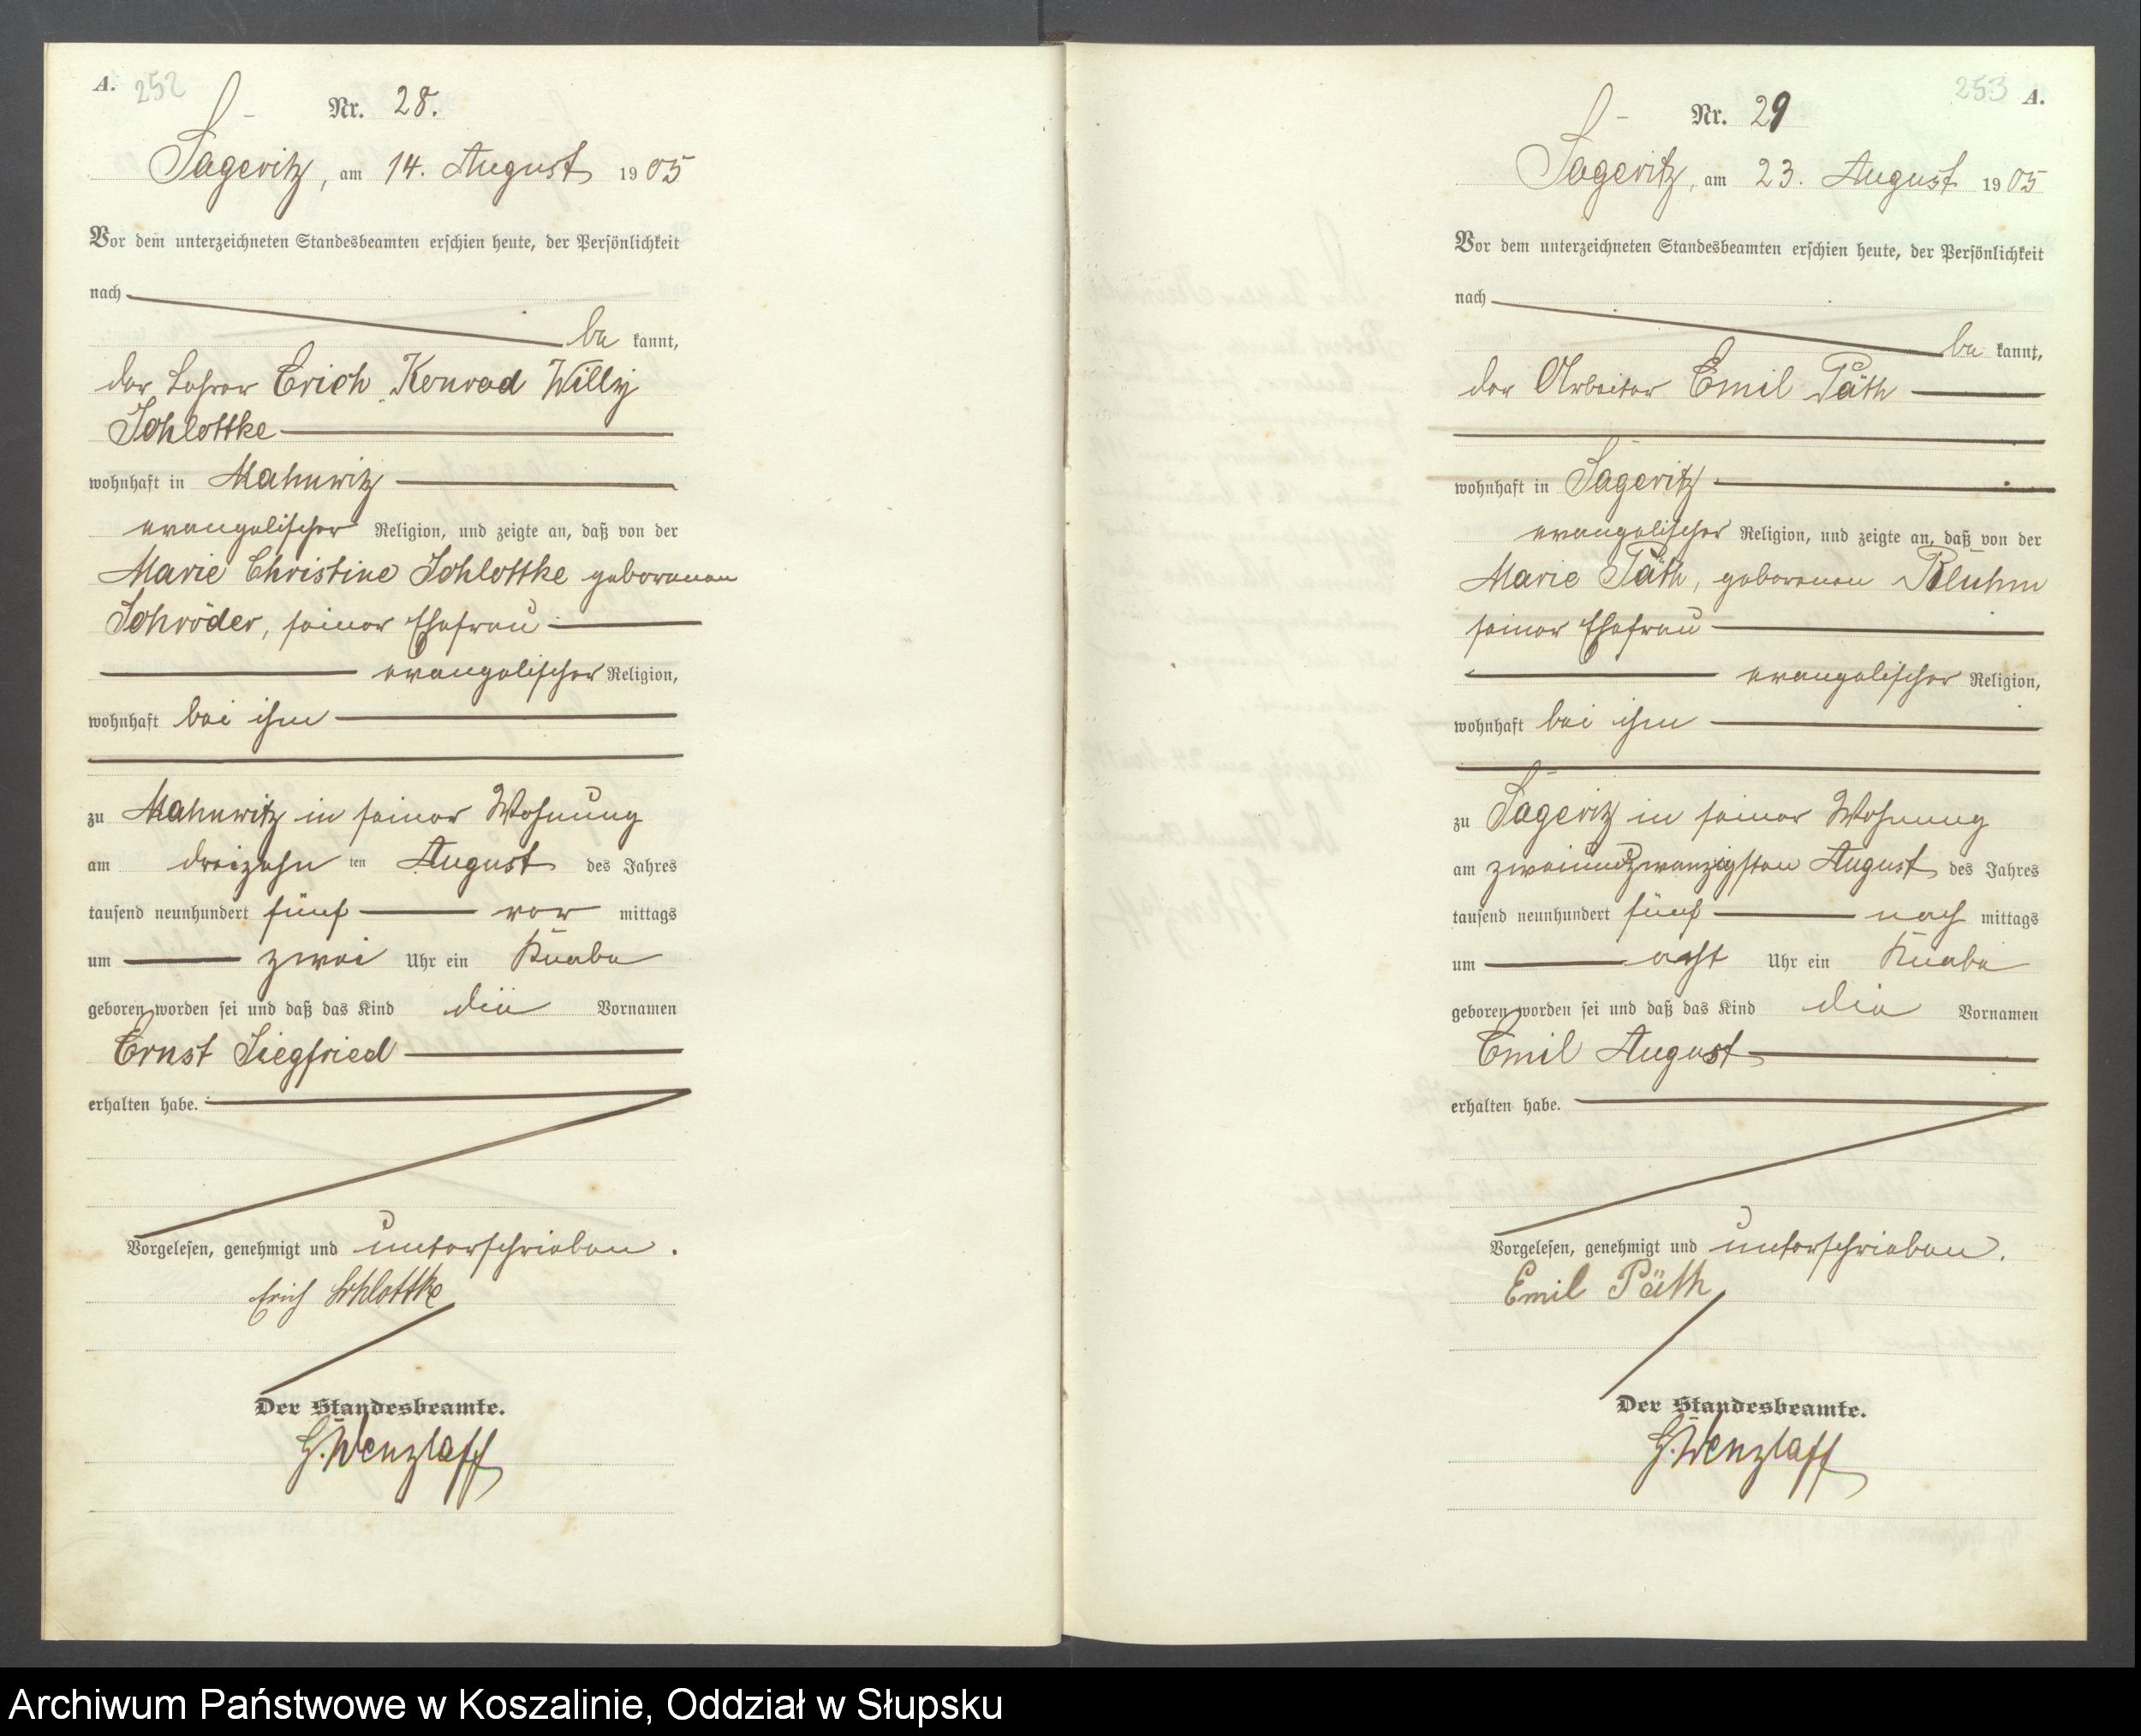 A. 252
Nr. 28.
Sageritz, am 14. August 1905
Vor dem unterzeichneten Standesbeamten erschien heute, der Persönlichkeit
nach
be kannt,
der Lehrer Erich Konrad Willy
Schlottke
wohnhaft in Mahnwitz
evangelischer Religion, und zeigte an, daß von der
Marie Christine Schlottke geborenen
Schröder, seiner Ehefrau
evangelischer Religion,
wohnhaft bei ihm
zu Mahnwitz in seiner Wohnung
am dreizehn ten August des Jahres
tausend neunhundert fünf vor mittags
um zwei Uhr ein Knabe
geboren worden sei und daß das Kind die Vornamen
Ernst Siegfried
erhalten habe.
Vorgelesen, genehmigt und unterschrieben.
Erich Schlottke
Der Standesbeamte.
G. Wenzlaff
253 A.
Nr. 29
Sageritz, am 23. August 1905
Vor dem unterzeichneten Standesbeamten erschien heute, der Persönlichkeit
nach
be kannt,
der Arbeiter Emil Päth
wohnhaft in Sageritz
evangelischer Religion, und zeigte an, daß von der
Marie Päth, geborenen Bluhm
seiner Ehefrau
evangelischer Religion,
wohnhaft bei ihm
zu Sageritz in seiner Wohnung
am zweiundzwanzigsten August des Jahres
tausend neunhundert fünf nach mittags
um acht Uhr ein Knabe
geboren worden sei und daß das Kind die Vornamen
Emil August
erhalten habe.
Vorgelesen, genehmigt und unterschrieben.
Emil Päth
Der Standesbeamte.
G. Wenzlaff
Archiwum Państwowe w Koszalinie, Oddział w Słupsku